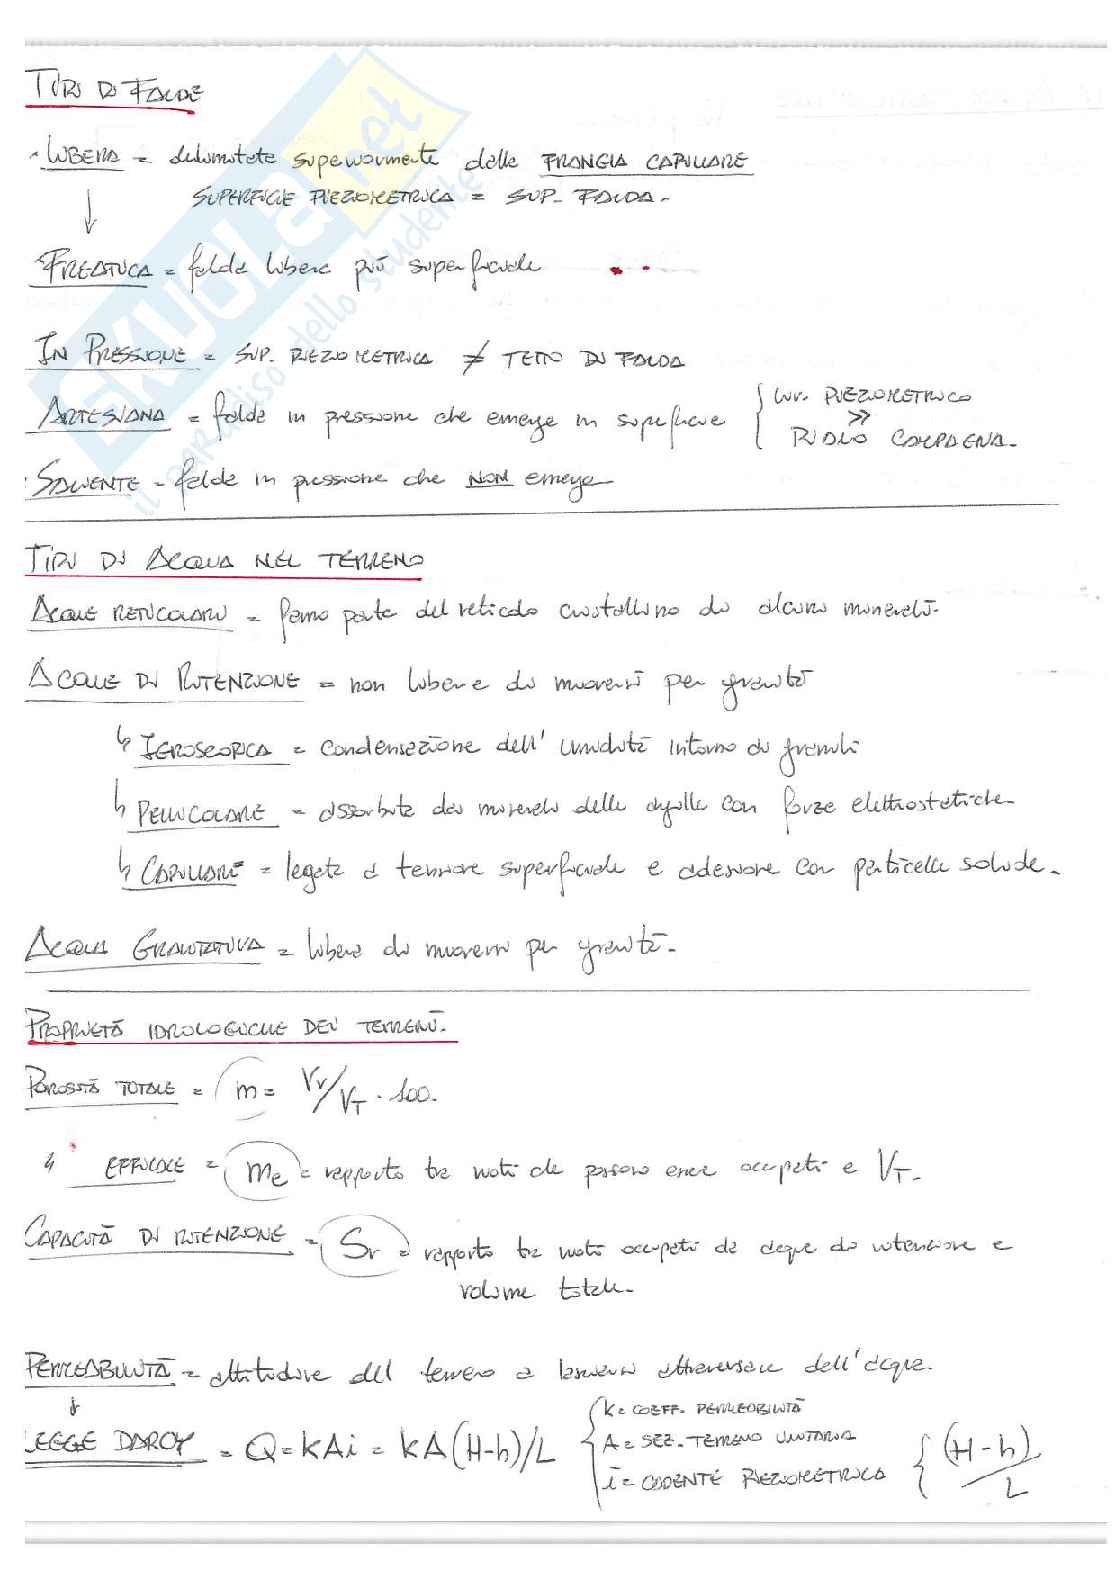 TIPI DI FALDE
· LIBERA = delimitata superiormente dalla FRANGIA CAPILLARE
SUPERFICIE PIEZOMETRICA = SUP. FALDA.
FREATICA = falda libera più superficiale
IN PRESSIONE = SUP. PIEZOMETRICA ≠ TETTO DI FALDA
ARTESIANA = falda in pressione che emerge in superficie { LIV. PIEZOMETRICO
>>
PIANO CAMPAGNA.
· SALIENTE = falda in pressione che NON emerge
TIPI DI ACQUA NEL TERRENO
ACQUE RETICOLARI = fanno parte del reticolo cristallino di alcuni minerali.
ACQUE DI RITENZIONE = non libere di muoversi per gravità
↳ IGROSCOPICA = condensazione dell' umidità intorno ai granuli
↳ PELLICOLARE = assorbita dai minerali delle argille con forze elettrostatiche
↳ CAPILLARE = legata a tensione superficiale e adesione con particelle solide.
ACQUA GRAVITATIVA = libera di muoversi per gravità.
PROPRIETÀ IDROLOGICHE DEI TERRENI.
POROSITÀ TOTALE = m = Vv/VT · 100.
" EFFICACE = me = rapporto tra vuoti che possono essere occupati e VT.
CAPACITÀ DI RITENZIONE = Sr = rapporto tra vuoti occupati da acqua di ritenzione e
volume totale.
PERMEABILITÀ = attitudine del terreno a lasciarsi attraversare dall'acqua.
LEGGE DARCY = Q = KAi = KA(H-h)/L { K = COEFF. PERMEABILITÀ
A = SEZ. TERRENO UNITARIA
i = CADENTE PIEZOMETRICA { (H-h)/L
SKUOLA.net
il paradiso dello studente